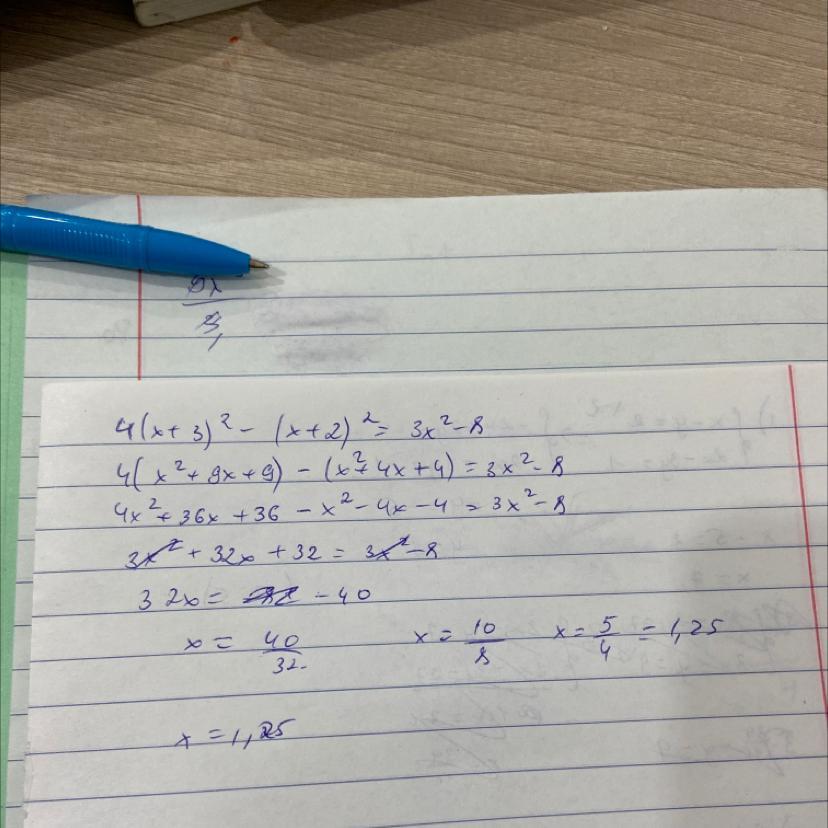 4(x+3)² - (x+2)² = 3x² - 8
4(x² + 9x + 9) - (x² + 4x + 4) = 3x² - 8
4x² + 36x + 36 - x² - 4x - 4 = 3x² - 8
3x² + 32x + 32 = 3x² - 8
32x = -40
x = 40/32 x = 10/8 x = 5/4 = 1,25
x = 1,25